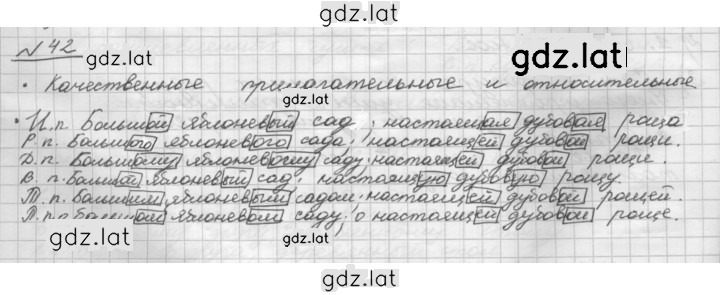 gdz.lat
№ 42
gdz.lat
• Качественные прилагательные и относительные
gdz.lat
• И.п. Большой яблоневый сад, настоящая дубовая роща
Р.п. Большого яблоневого сада, настоящей дубовой рощи.
Д.п. Большому яблоневому саду, настоящей дубовой роще.
В.п. Большой яблоневый сад, настоящую дубовую рощу.
Т.п. Большим яблоневым садом, настоящей дубовой рощей.
П.п. о большом яблоневом саду, о настоящей дубовой роще.
gdz.lat
gdz.lat
gdz.lat
gdz.lat